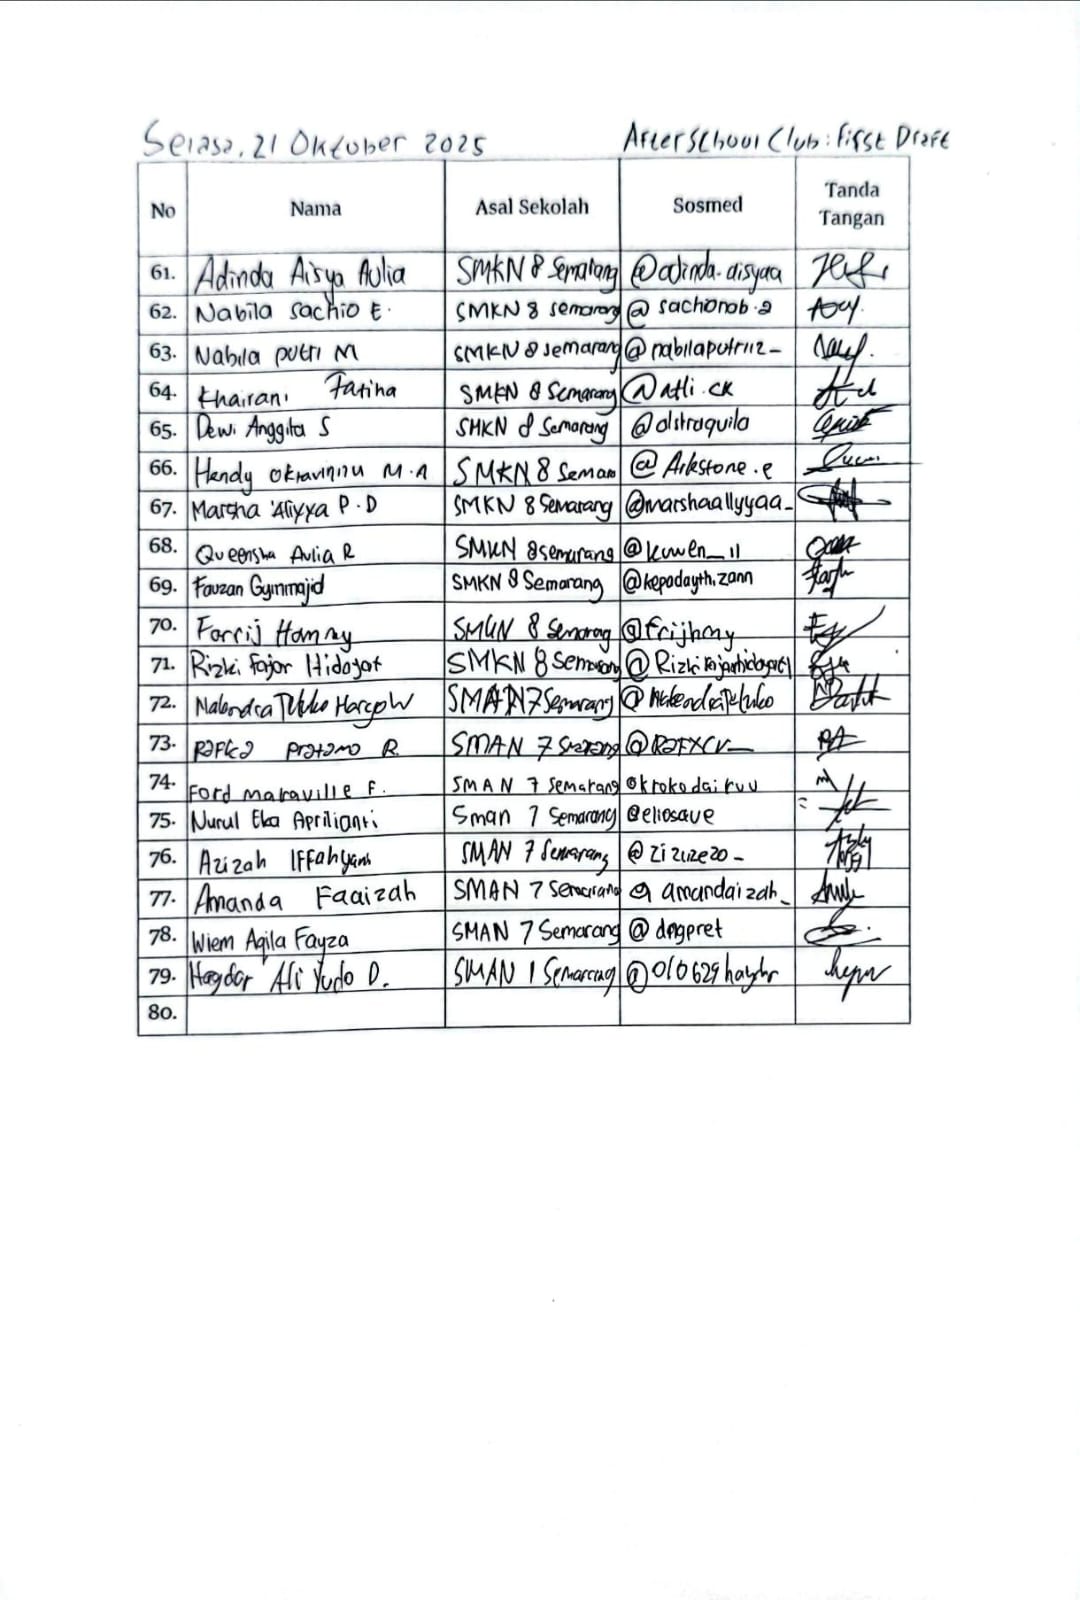 Selasa, 21 Oktober 2025 Afterschool Club: First Draft
No Nama Asal Sekolah Sosmed Tanda Tangan
61. Adinda Aisya Aulia SMKN 8 Semarang @adinda.aisyaa
62. Nabila Sachio E. SMKN 8 semarang @ sachonob.a
63. Nabila putri M SMKN 8 semarang @nabilaputrii2_
64. Khairani Fatina SMKN 8 Semarang
65. Dewi Anggita S SMKN 8 Semarang @alstroquila
66. Hendy M.A SMKN 8 @Arkstone.e
67. Marsha 'Aliyya P.D SMKN 8 Semarang @marshaallyyaa_
68. Queensha Aulia R SMKN 8 semarang @kuwen_11
69. Fauzan Gymmajid SMKN 8 Semarang @kepodayth.zann
70. Farrij Hammy SMKN 8 @frijhmy
71. Rizki Fajar Hidayat SMKN 8 Semarang
72. SMAN 7 Semarang
73. Rafka Pratama R SMAN 7 @RAFXCV_
74. Ford maraville F. SMAN 7 Semarang @krokodairuu
75. Nurul Eka Aprilianti Sman 7 Semarang @eliosave
76. Azizah Iffahyani SMAN 7 Semarang @zizuze20_
77. Amanda Faaizah SMAN 7 Semarang @ amandaizah_
78. Wiem Aqila Fayza SMAN 7 Semarang @ dngpret
79. Haydar 'Ali Yudo D. SMAN 1 Semarang @010629haydr
80.